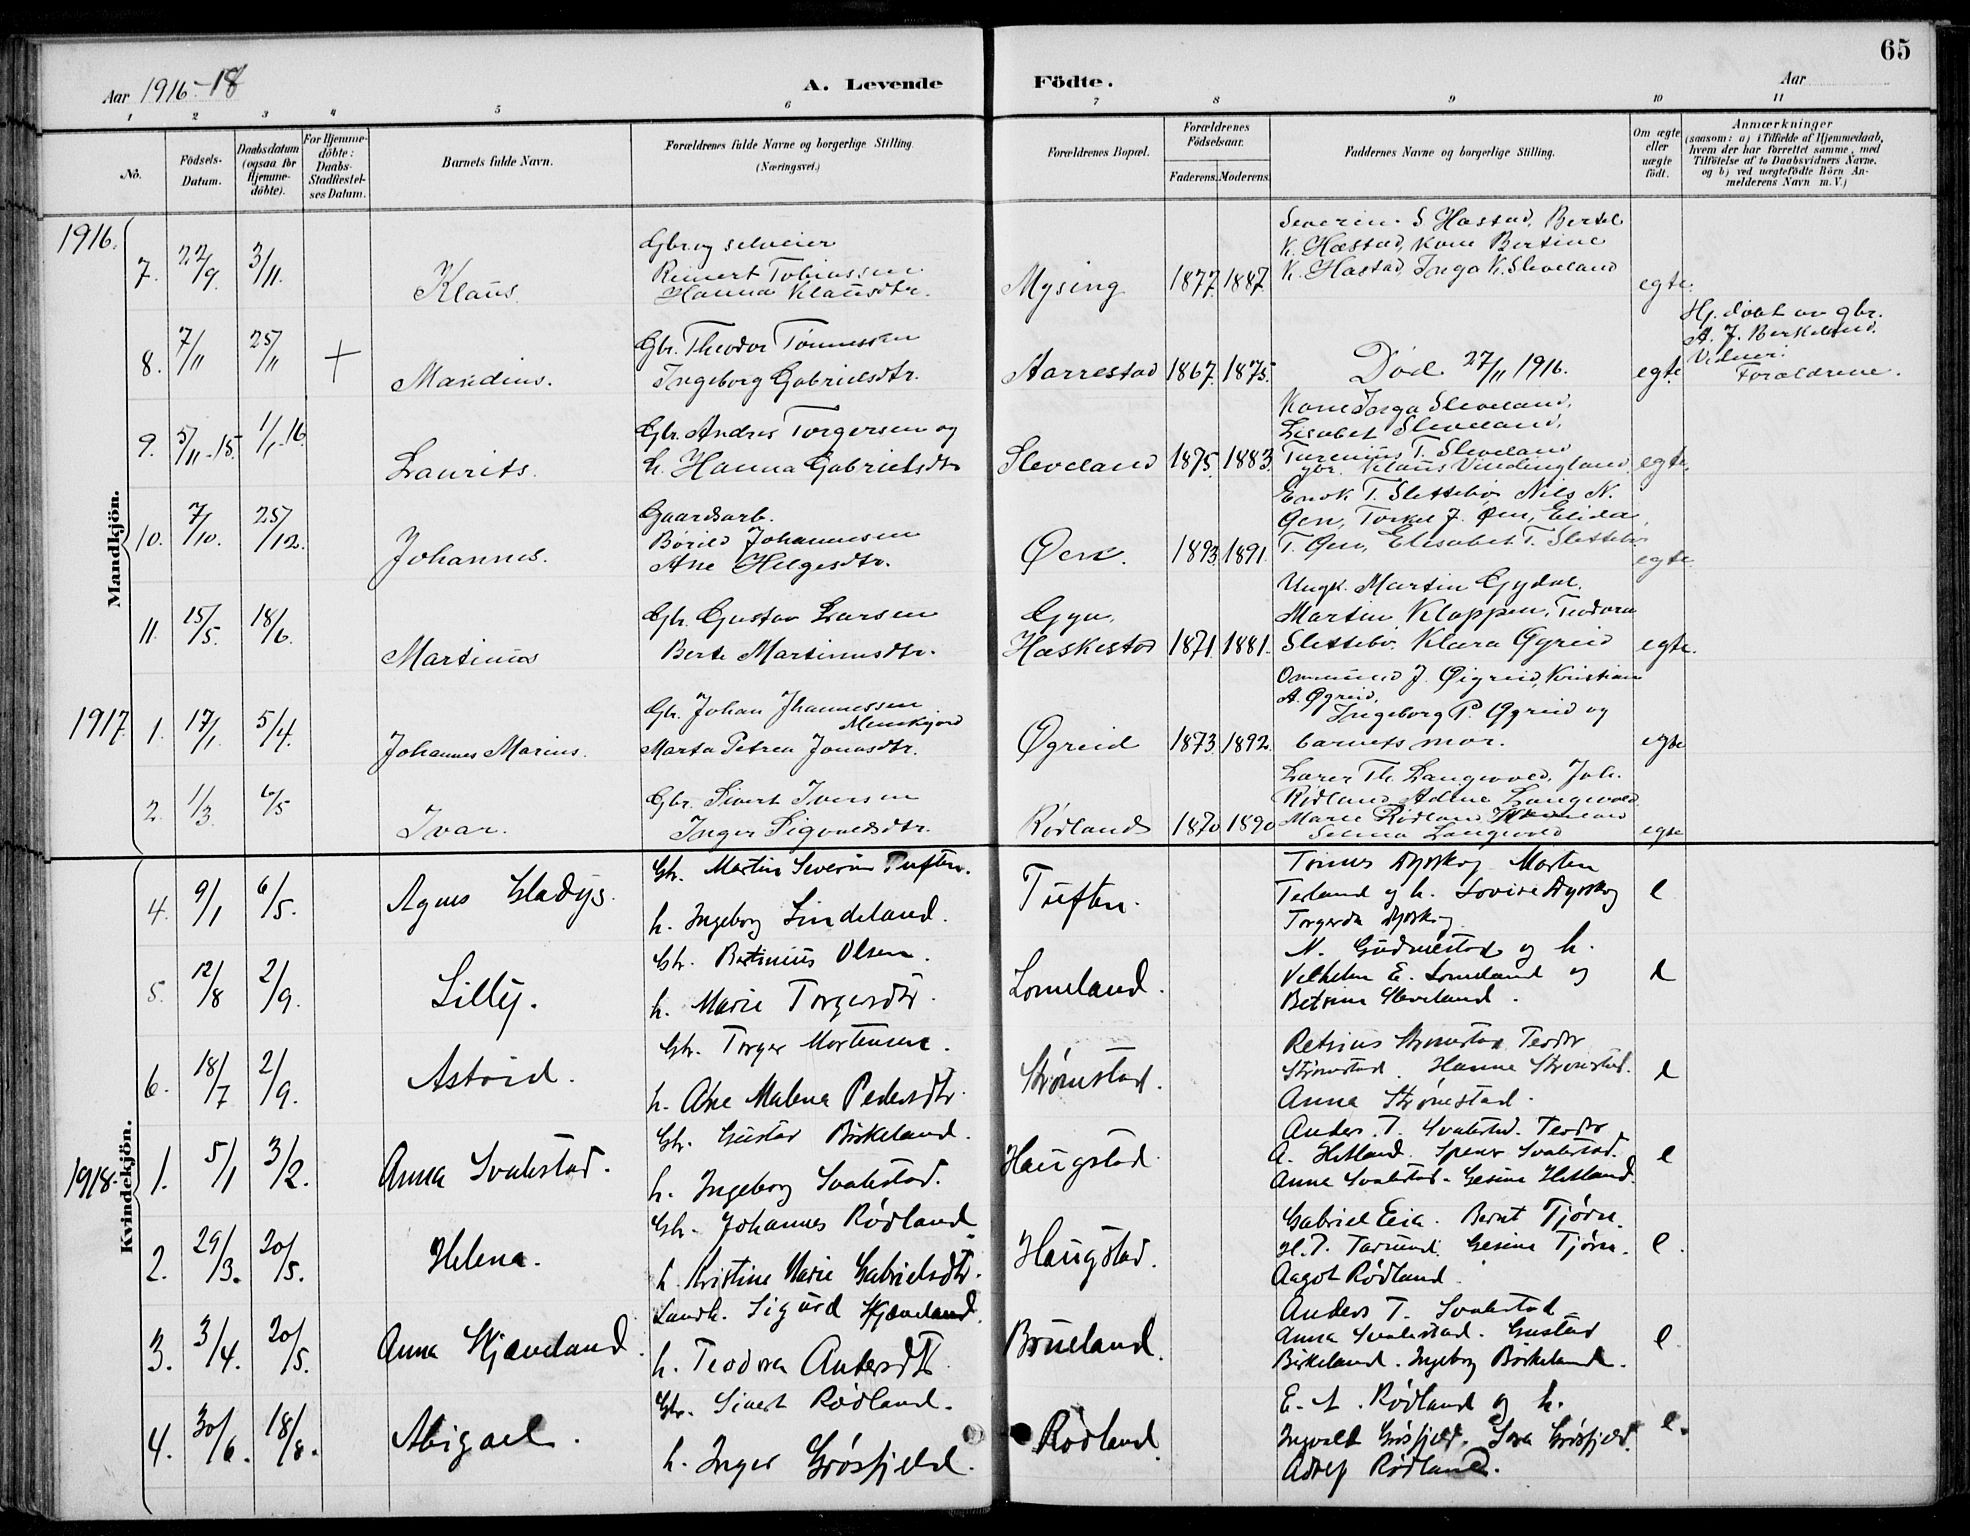 65
Aar 1916-18
A. Levende Födte.
Aar
1 2 3 4 5 6 7 8 9 10 11
No.
Födsels-Datum.
Daabsdatum (ogsaa for Hjemme-döbte).
For Hjemme-döbte: Daabs-Stadfæstel-ses Datum.
Barnets fulde Navn.
Forældrenes fulde Navne og borgerlige Stilling. (Næringsvei.)
Forældrenes Bopæl.
Forældrenes Födselsaar.
Faderens. Moderens.
Faddernes Navne og borgerlige Stilling.
Om ægte eller uægte födt.
Anmærkninger
(saasom: a) i Tilfælde af Hjemmedaab,
hvem der har forrettet samme, med
Tilföielse af to Daabsvidners Navne.
og b) ved uægtefödte Börn An-
melderens Navn m.V.)
Mandkjön.
1916.
7. 22/9. 3/11. Klaus
Gbr. og selveier
Reinert Tobiassen
Hanna Klausdtr.
Mysing 1877. 1887.
Severin S Hæstad, Bertel
K. Hæstad, Kone Bertine
K. Hæstad, Inga K. Sleveland
egte.
8. 7/11 25/11 + Mandius.
Gbr. Theodor Tønnessen
Ingeborg Gabrielsdtr.
Aarrestad 1867. 1875.
Död 27/11 1916.
egte.
Hj. döbt av gbr.
A. J. Berkeland.
Vidner:
Forældrene.
9. 5/11-15. 1/1-16 Laurits.
Gbr. Andres Torgersen og
h. Hanna Gabrielsdtr
Sleveland 1875. 1883.
Kone Inga Sleveland,
Lisabet Sleveland,
T. Sleveland
gbr. Klaus Vindingland.
egte.
10. 7/10. 25/12. Johannes.
Gaardsarb.
Børild Johannesen
Ane Helgesdtr.
Øen. 1893. 1891.
Enok T. Slettebø Nils N.
Øen, Torkel J. Øen, Elida
T. Øen, Elisabet T. Slettebø
egte
11. 15/5. 18/6. Martinus
Gbr. Gustav Larsen
Berte Martinusdtr.
Gya,
Hæskestad 1871. 1881.
Ungk. Martin Gydal.
Martin Kloppen, Teodora
Slettebø. Klara Øgreid
egte.
1917.
1. 17/1. 5/4. Johannes Marius.
Gbr. Johan Jhannessen
Marta Petrea Jonasdtr.
Øgreid 1873. 1892.
Ommund J. Øigreid, Kristian
A. Øgreid,
Ingeborg P. Øgreid og
barnets mor.
egte
2. 1/3. 6/5 Ivar.
Gbr. Sivert Iversen
Inger Sigvaldsdtr.
Rødland 1870 1890
Lærer Th. Langevold, Joh.
Rødland Adine Langevold
Marie Rødland
Selma Langevold
egte
Kvindekjön.
4. 9/1 6/5. Agnes Gladys.
Gbr. Martin Severin Tuften.
h. Ingeborg Lindeland.
Tuften.
Tønnes Dypskog Morten
Terland og h. Lovise Dypskog
Torgerda Dypskog
e
5. 12/8 2/9. Lilly.
Gbr. Bertinius Olsen.
h. Marie Torgersdtr.
Lomeland.
N. Gudmestad og h.
Velhelm E. Lomeland og
Betrine Sleveland.
e
6. 18/7 2/9. Astrid.
Gbr. Torger Mortensen.
h. Ane Malena Pedersdtr.
Strømstad.
Retsius Strømstad Teodor
Strømstad. Hanna Strømstad.
Anna Strømstad.
e
1918.
1. 5/1 3/2. Anna Svalestad.
Gbr. Gustav Birkeland.
h. Ingeborg Svalestad.
Haugstad
Anders T. Svalestad. Teodor
A. Hetland. Svalestad.
Anna Svalestad. Gesine Hetland.
e
2. 29/3. 20/5. Helena.
Gbr. Johannes Rødland
h. Kristine Marie Gabrielsdtr.
Haugstad.
Gabriel Eia. Bernt Tjørn.
H. T. Gesine Tjørn.
Aagot Rødland.
e.
3. 3/4. 20/5. Anna Skjæveland.
Landh. Sigurd Skjæveland.
h. Teodora Andersdtr.
Brueland.
Anders T. Svalestad
Anna Svalestad. Gustav
Birkeland. Ingeborg Birkeland.
e
4. 30/6. 18/8. Abigael.
Gbr. Sivert Rødland.
h. Inger Grøsfjeld.
Rødland.
E. A. Rødland og h.
Ingvald Grøsfjeld. Sara Grøsfjeld.
Adolf Rødland.
e.